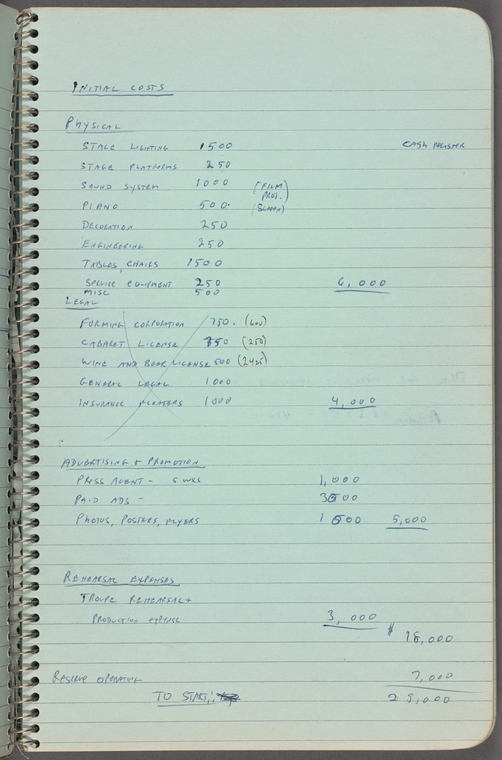 INITIAL COSTS
PHYSICAL
STAGE LIGHTING 1500 CASH REGISTER
STAGE PLATFORMS 250
SOUND SYSTEM 1000 (FILM
PROJ.)
PIANO 500. (SCREEN)
DECORATION 250
ENGINEERING 250
TABLES, CHAIRS 1500
SERVICE EQUIPMENT 250 6,000
MISC 500
LEGAL
FORMING CORPORATION 750. (600)
CABARET LICENSE 750 (250)
WINE AND BEER LICENSE 500 (2425)
GENERAL LEGAL 1000
INSURANCE FLOATERS 1000 4,000
ADVERTISING + PROMOTION
PRESS AGENT - 5 WKS 1,000
PAID ADS - 3500
PHOTOS, POSTERS, FLYERS 1500 5,000
REHEARSAL EXPENSES
TROUPE REHEARSAL +
PRODUCTION EXPENSE 3,000
$ 18,000
RESERVE OPERATING 7,000
TO START: 25,000